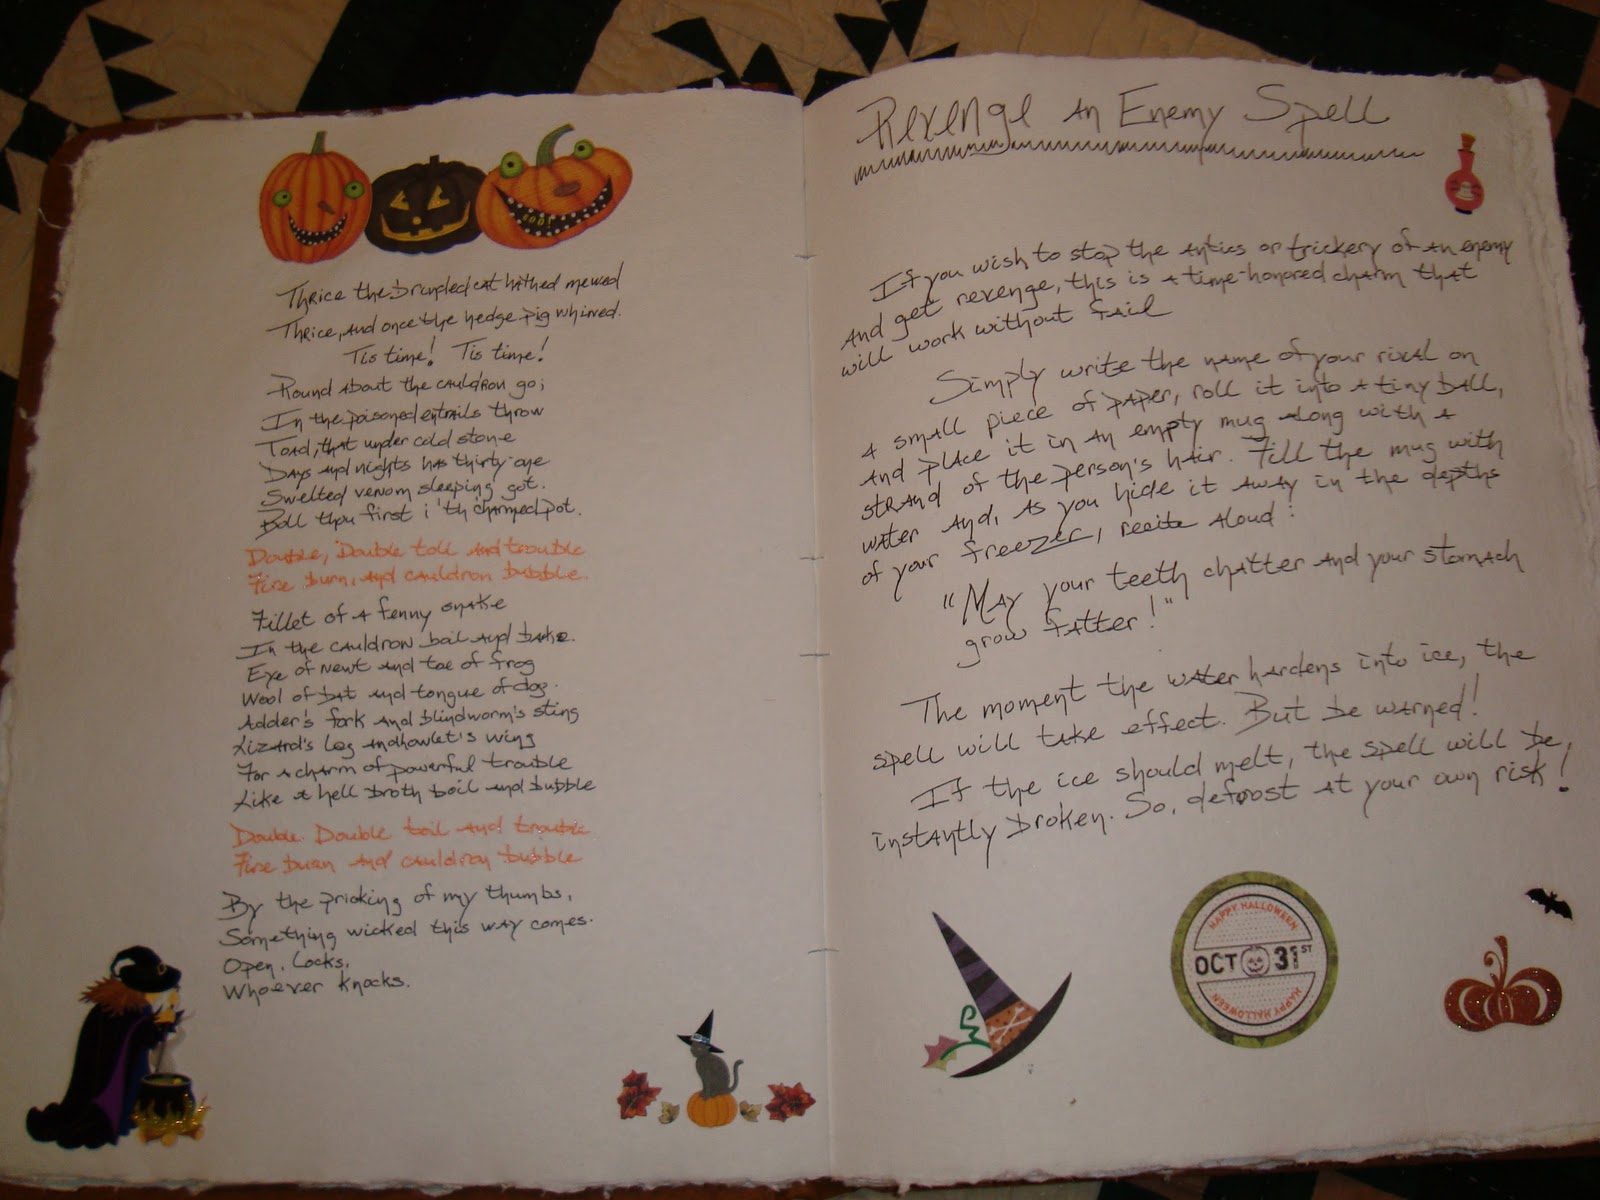 Thrice the brindled cat hathed mewed
Thrice, and once the hedge pig whirred.
Tis time! Tis time!
Round about the cauldron go;
In the poisoned entrails throw
Toad, that under cold stone
Days and nights has thirty-one
Swelted venom sleeping got.
Boll thou first i 'th charmed pot.
Double, Double toll and trouble
Fire burn, and cauldron bubble.
Fillet of a fenny snake
In the cauldron boil and bake.
Eye of newt and toe of frog
Wool of bat and tongue of dog.
Adder's fork and blindworm's sting
Lizard's Leg and howlet's wing
For a charm of powerful trouble
Like a hell broth boil and bubble
Double. Double toil and trouble
Fire burn and cauldron bubble
By the pricking of my thumbs,
Something wicked this way comes.
Open, Locks,
Whoever knocks.
Revenge An Enemy Spell
If you wish to stop the antics or trickery of an enemy
and get revenge, this is a time-honored charm that
will work without fail
Simply write the name of your rival on
a small piece of paper, roll it into a tiny ball,
and place it in an empty mug along with a
strand of the person's hair. Fill the mug with
water and, as you hide it away in the depths
of your freezer, recite aloud:
"May your teeth chatter and your stomach
grow fatter!"
The moment the water hardens into ice, the
spell will take effect. But be warned!
If the ice should melt, the spell will be,
instantly broken. So, defrost at your own risk!
HAPPY HALLOWEEN
OCT 31ST
HAPPY HALLOWEEN